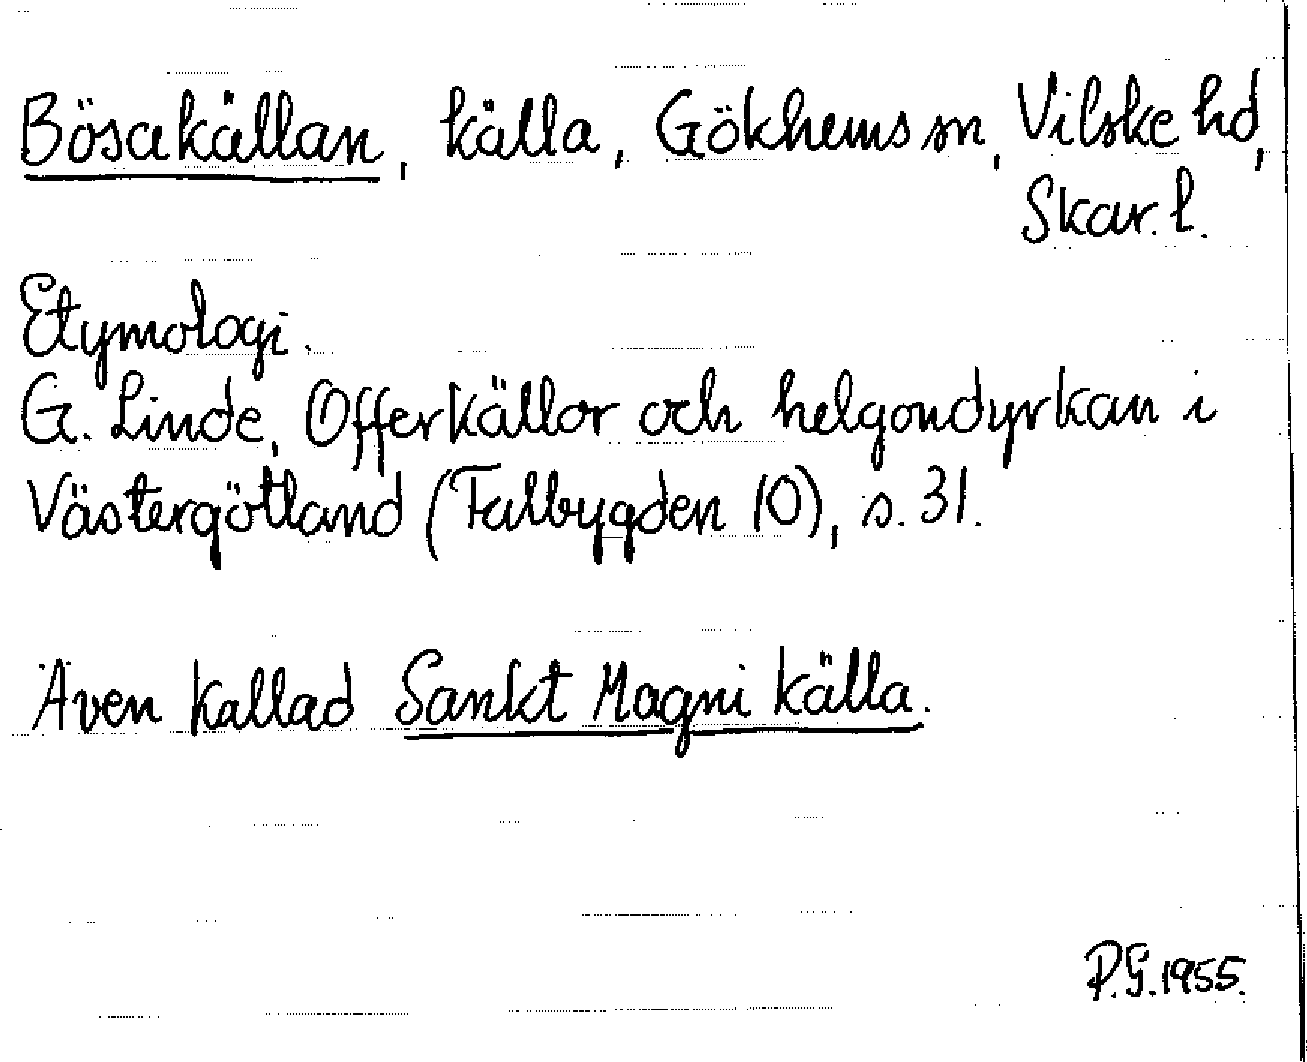 Bösakällan, källa, Gökhems sn, Vilske hd,
Skar. l.
Etymologi.
G. Linde, Offerkällor och helgondyrkan i
Västergötland (Falbygden 10), s. 31.
Även kallad Sankt Magni källa.
P.G. 1955.